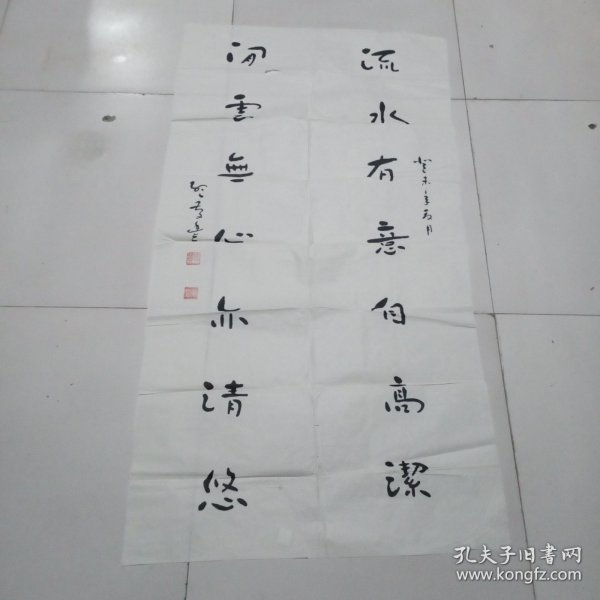 流水有意自高潔
癸未年
閒雲無心亦清悠
孔夫子旧书网
www.kongfz.com